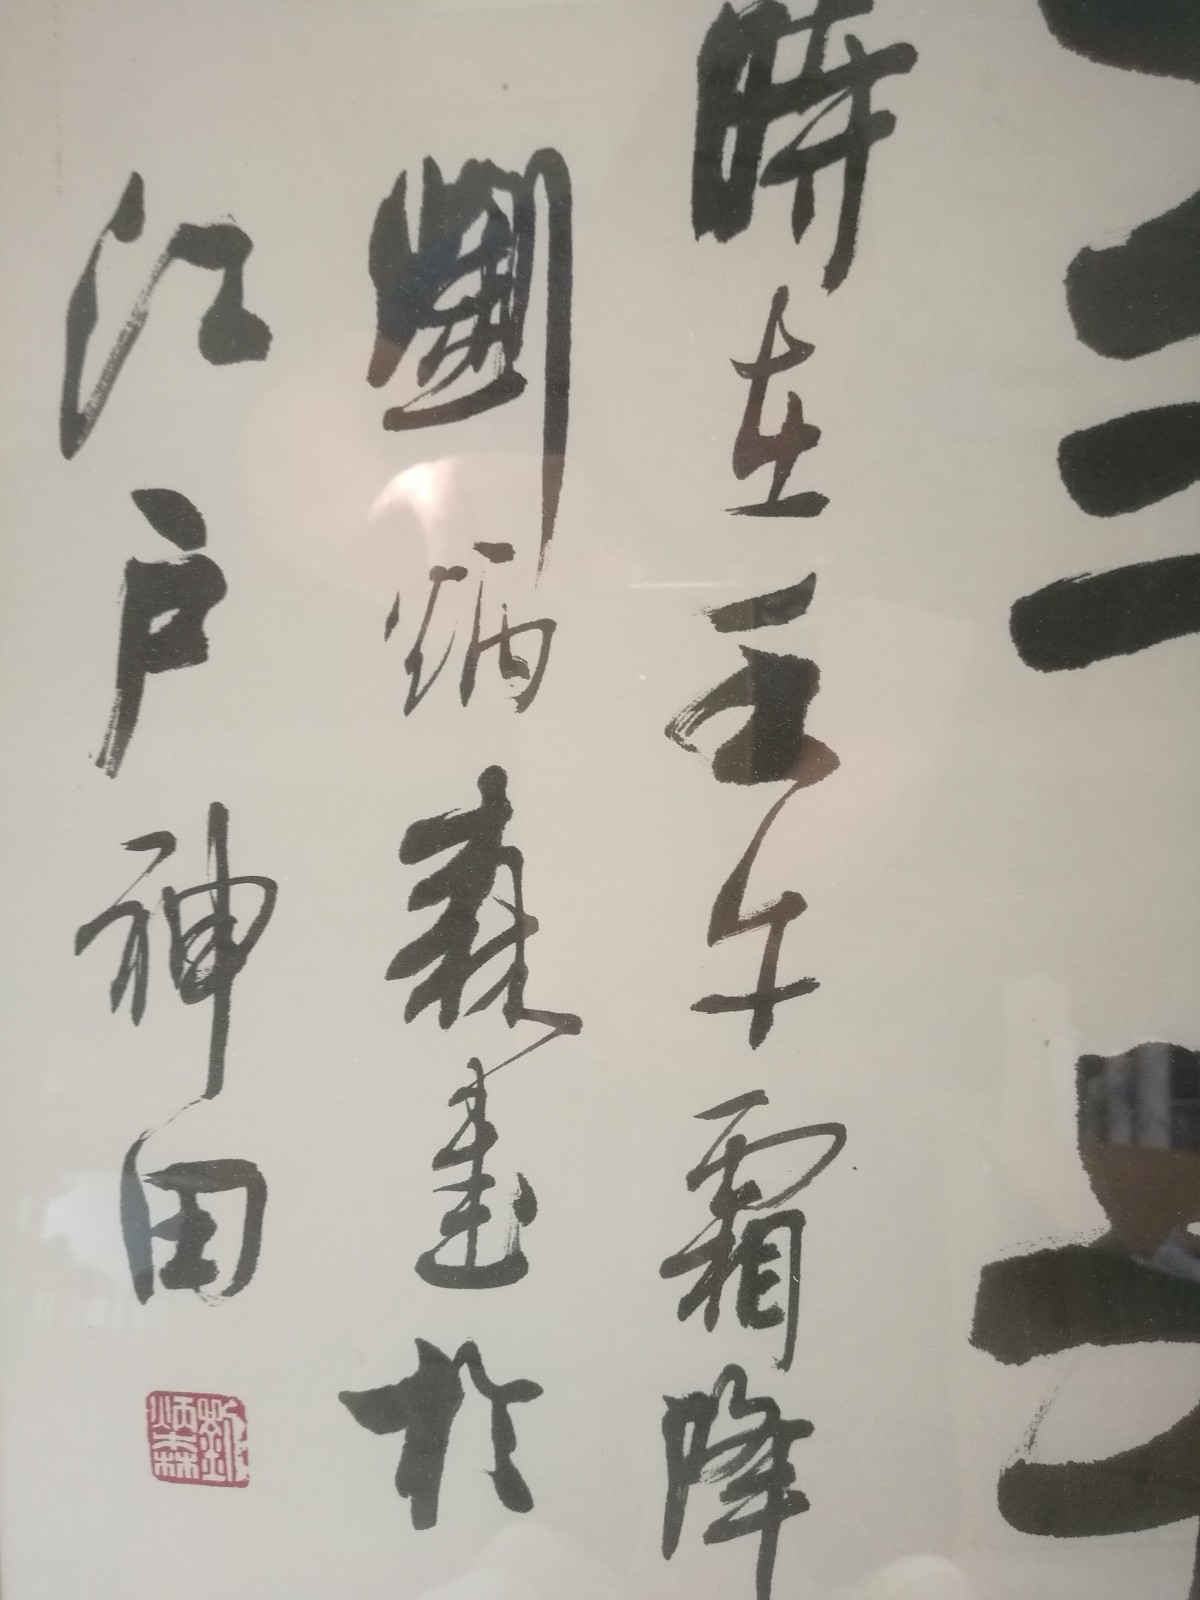 時在壬午霜降
劉炳森書於
江户神田
劉炳森